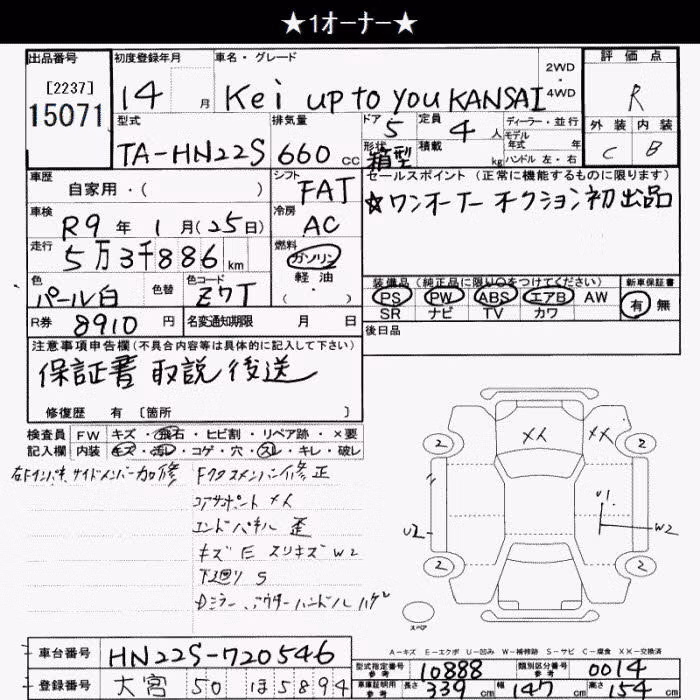 ★1オーナー★
出品番号
[2237]
15071
初度登録年月
14 月
車名・グレード
Kei up to you KANSAI
2WD
・
4WD
評価点
R
外装 内装
C B
型式
TA-HN22S
排気量
660 cc
ドア 5
定員 4 人
形状 箱型
積載 kg
ディーラー・並行
モデル年式 年
ハンドル 左・右
車歴
自家用・( )
シフト
FAT
セールスポイント (正常に機能するものに限ります)
☆ワンオーナー オークション初出品
車検
R9 年 1 月(25日)
冷房
AC
走行
5万3千886 km
燃料
ガソリン
軽・油
・( )
色
パール白
色替
色コード
Z7T
装備品 (純正品に限り○をつけてください)
PS PW ABS エアB AW
SR ナビ TV カワ
新車保証書
有 無
R券 8910 円
名変通知期限 月 日
後日品
注意事項申告欄(不具合内容等は具体的に記入して下さい)
保証書 取説 後送
修復歴 有 [箇所 ]
検査員 FW キズ・飛石・ヒビ割・リペア跡・×要
記入欄 内装 キズ・汚レ・コゲ・穴・スレ・キレ・破レ
右Fインパネ サイドメンバー加修
Fクロスメンバー修正
コアサポート XX
エンドパネル 歪
キズ E スリキズ W2
下廻り S
Dミラー、アウターハンドルハゲ
XX XX
2 2
U1
U2 W2
2 2
スペア
A-キズ E-エクボ U-凹み W-補修跡 S-サビ C-腐食 XX-交換済
車台番号 HN22S-720546
登録番号 大宮 50 ほ 5894
型式指定番号 参考 10888
類別区分番号 参考 0014
車庫証明用 参考 長さ 339 cm 幅 147 cm 高さ 154 cm